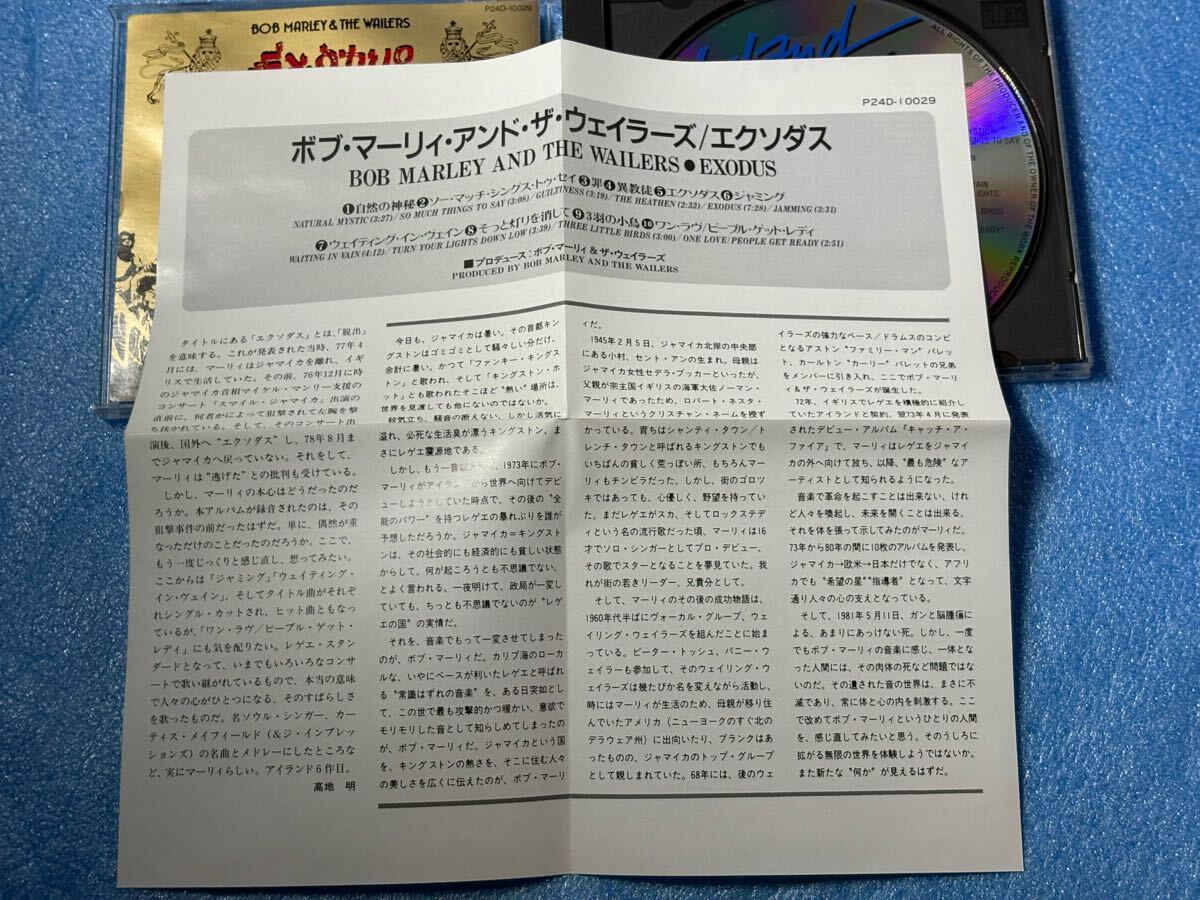 BOB MARLEY & THE WAILERS
P24D-10029
Island
ALL RIGHTS OF THE PRODUCER AND OF THE OWNER OF THE WORK REPRODUC
P24D-10029
ボブ・マーリィ・アンド・ザ・ウェイラーズ/エクソダス
BOB MARLEY AND THE WAILERS●EXODUS
❶自然の神秘❷ソー・マッチ・シングス・トゥ・セイ❸罪❹異教徒❺エクソダス❻ジャミング
NATURAL MYSTIC (3:27)/SO MUCH THINGS TO SAY (3:08)/GUILTINESS (3:19)/THE HEATHEN (2:32)/EXODUS (7:28)/JAMMING (3:31)
❼ウェイティング・イン・ヴェイン❽そっと灯りを消して❾3羽の小鳥❿ワン・ラヴ/ピープル・ゲット・レディ
WAITING IN VAIN (4:12)/TURN YOUR LIGHTS DOWN LOW (3:39)/THREE LITTLE BIRDS (3:00)/ONE LOVE/PEOPLE GET READY (2:51)
■プロデュース:ボブ・マーリィ&ザ・ウェイラーズ
PRODUCED BY BOB MARLEY AND THE WAILERS
タイトルにある「エクソダス」とは、「脱出」
を意味する。これが発表された当時、77年4
月には、マーリィはジャマイカを離れ、イギ
リスで生活していた。その前、76年12月に時
のジャマイカ首相マイケル・マンリー支援の
コンサート『スマイル・ジャマイカ』出演の
直前に、何者かによって狙撃されて左腕を撃
ち抜かれている。そして、そのコンサート出
演後、国外へ“エクソダス”し、78年8月ま
でジャマイカへ戻っていない。それをして、
マーリィは“逃げた”との批判も受けている。
しかし、マーリィの本心はどうだったのだ
ろうか。本アルバムが録音されたのは、その
狙撃事件の前だったはずだ。単に、偶然が重
なっただけのことだったのだろうか。ここで、
もう一度じっくりと感じ直し、想ってみたい。
ここからは「ジャミング」「ウェイティング・
イン・ヴェイン」、そしてタイトル曲がそれぞ
れシングル・カットされ、ヒット曲ともなっ
ているが、「ワン・ラヴ/ピープル・ゲット・
レディ」にも気を配りたい。レゲエ・スタン
ダードとなって、いまでもいろいろなコンサ
ートで歌い継がれているもので、本当の意味
で人々の心がひとつになる、そのすばらしさ
を歌ったものだ。名ソウル・シンガー、カー
ティス・メイフィールド(&ジ・インプレッ
ションズ)の名曲とメドレーにしたところな
ど、実にマーリィらしい。アイランド6作目。
高地 明
今日も、ジャマイカは暑い。その首都キン
グストンはゴミゴミとして騒々しい分だけ、
余計に暑い。かつて「ファンキー・キングス
トン」と歌われ、そして「キングストン・ホ
ット」とも歌われたそこほど“熱い”場所は、
世界を見渡しても他にないのではないか。
殺気立ち、騒音の断えない、しかし活気に
溢れ、必死な生活臭が漂うキングストン、ま
さにレゲエ震源地である。
しかし、もう一昔以上前、1973年にボブ・
マーリィがアイランドから世界へ向けてデビ
ューしようとしていた時点で、その後の“全
能のパワー”を持つレゲエの暴れぶりを誰が
予想しただろうか。ジャマイカ=キングスト
ンは、その社会的にも経済的にも貧しい状態
からして、何が起ころうとも不思議でない、
とよく言われる。一夜明けて、政局が一変し
ていても、ちっとも不思議でないのが“レゲ
エの国”の実情だ。
それを、音楽でもって一変させてしまった
のが、ボブ・マーリィだ。カリブ海のローカ
ルな、いやにベースが利いたレゲエと呼ばれ
る“常識はずれの音楽”を、ある日突如とし
て、この世で最も攻撃的かつ暖かい、意欲で
モリモリした音として知らしめてしまったの
が、ボブ・マーリィだ。ジャマイカという国
を、キングストンの熱さを、そこに住む人々
の美しさを広くに伝えたのが、ボブ・マーリ
ィだ。
1945年2月5日、ジャマイカ北岸の中央部
にある小村、セント・アンの生まれ。母親は
ジャマイカ女性セデラ・ブッカーといったが、
父親が宗主国イギリスの海軍大佐ノーマン・
マーリィであったため、ロバート・ネスタ・
マーリィというクリスチャン・ネームを授ず
かっている。育ちはシャンティ・タウン/ト
レンチ・タウンと呼ばれるキングストンでも
いちばんの貧しく荒っぽい所、もちろんマー
リィもチンピラだった。しかし、街のゴロツ
キではあっても、心優しく、野望を持ってい
た。まだレゲエがスカ、そしてロックステデ
ィという名の流行歌だった頃、マーリィは16
才でソロ・シンガーとしてプロ・デビュー、
その歌でスターとなることを夢見ていた。我
れが街の若きリーダー、兄貴分として。
そして、マーリィのその後の成功物語は、
1960年代半ばにヴォーカル・グループ、ウェ
イリング・ウェイラーズを組んだことに始ま
っている。ピーター・トッシュ、バニー・ウ
ェイラーも参加して、そのウェイリング・ウ
ェイラーズは幾たびか名を変えながら活動し、
時にはマーリィが生活のため、母親が移り住
んでいたアメリカ(ニューヨークのすぐ北の
デラウェア州)に出向いたり、ブランクはあ
ったものの、ジャマイカのトップ・グループ
として親しまれていた。68年には、後のウェ
イラーズの強力なベース/ドラムスのコンビ
となるアストン“ファミリー・マン”バレッ
ト、カールトン“カーリー”バレットの兄弟
をメンバーに引き入れ、ここでボブ・マーリ
ィ&ザ・ウェイラーズが誕生した。
72年、イギリスでレゲエを積極的に紹介し
ていたアイランドと契約、翌73年4月に発表
されたデビュー・アルバム「キャッチ・ア・
ファイア」で、マーリィはレゲエをジャマイ
カの外へ向けて放ち、以降、“最も危険”なア
ーティストとして知られるようになった。
音楽で革命を起こすことは出来ない、けれ
ど人々を喚起し、未来を開くことは出来る、
それを体を張って示してみたのがマーリィだ。
73年から80年の間に10枚のアルバムを発表し、
ジャマイカ→欧米→日本だけでなく、アフリ
カでも“希望の星”“指導者”となって、文字
通り人々の心の支えとなっている。
そして、1981年5月11日、ガンと脳腫瘍に
よる、あまりにあっけない死。しかし、一度
でもボブ・マーリィの音楽に感じ、一体とな
った人間には、その肉体の死など問題ではな
いのだ。その遺された音の世界は、まさに不
滅であり、常に体と心の内を刺激する。ここ
で改めてボブ・マーリィというひとりの人間
を、感じ直してみたいと思う。そのうしろに
拡がる無限の世界を体験しようではないか。
また新たな“何か”が見えるはずだ。